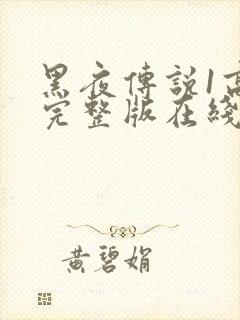 黑夜傳説1高
完整版在綫
黄碧娟